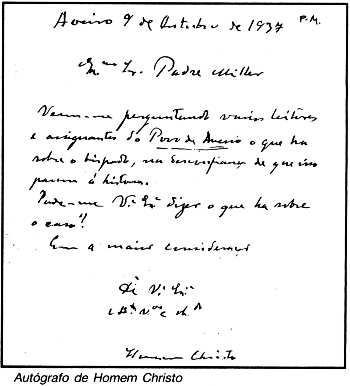 Aveiro 9 de Outubro de 1937 P.M.
Ex.mo Sr. Padre Miller
Veem-me perguntando varios leitores
e assignantes do Povo de Aveiro o que ha
sobre o bispado, na desconfiança de que isso
passou á historia.
Pode-me V. Ex.ª dizer o que ha sobre
o caso?
Com a maior consideração
De V. Ex.ª
Homem Christo
Autógrafo de Homem Christo